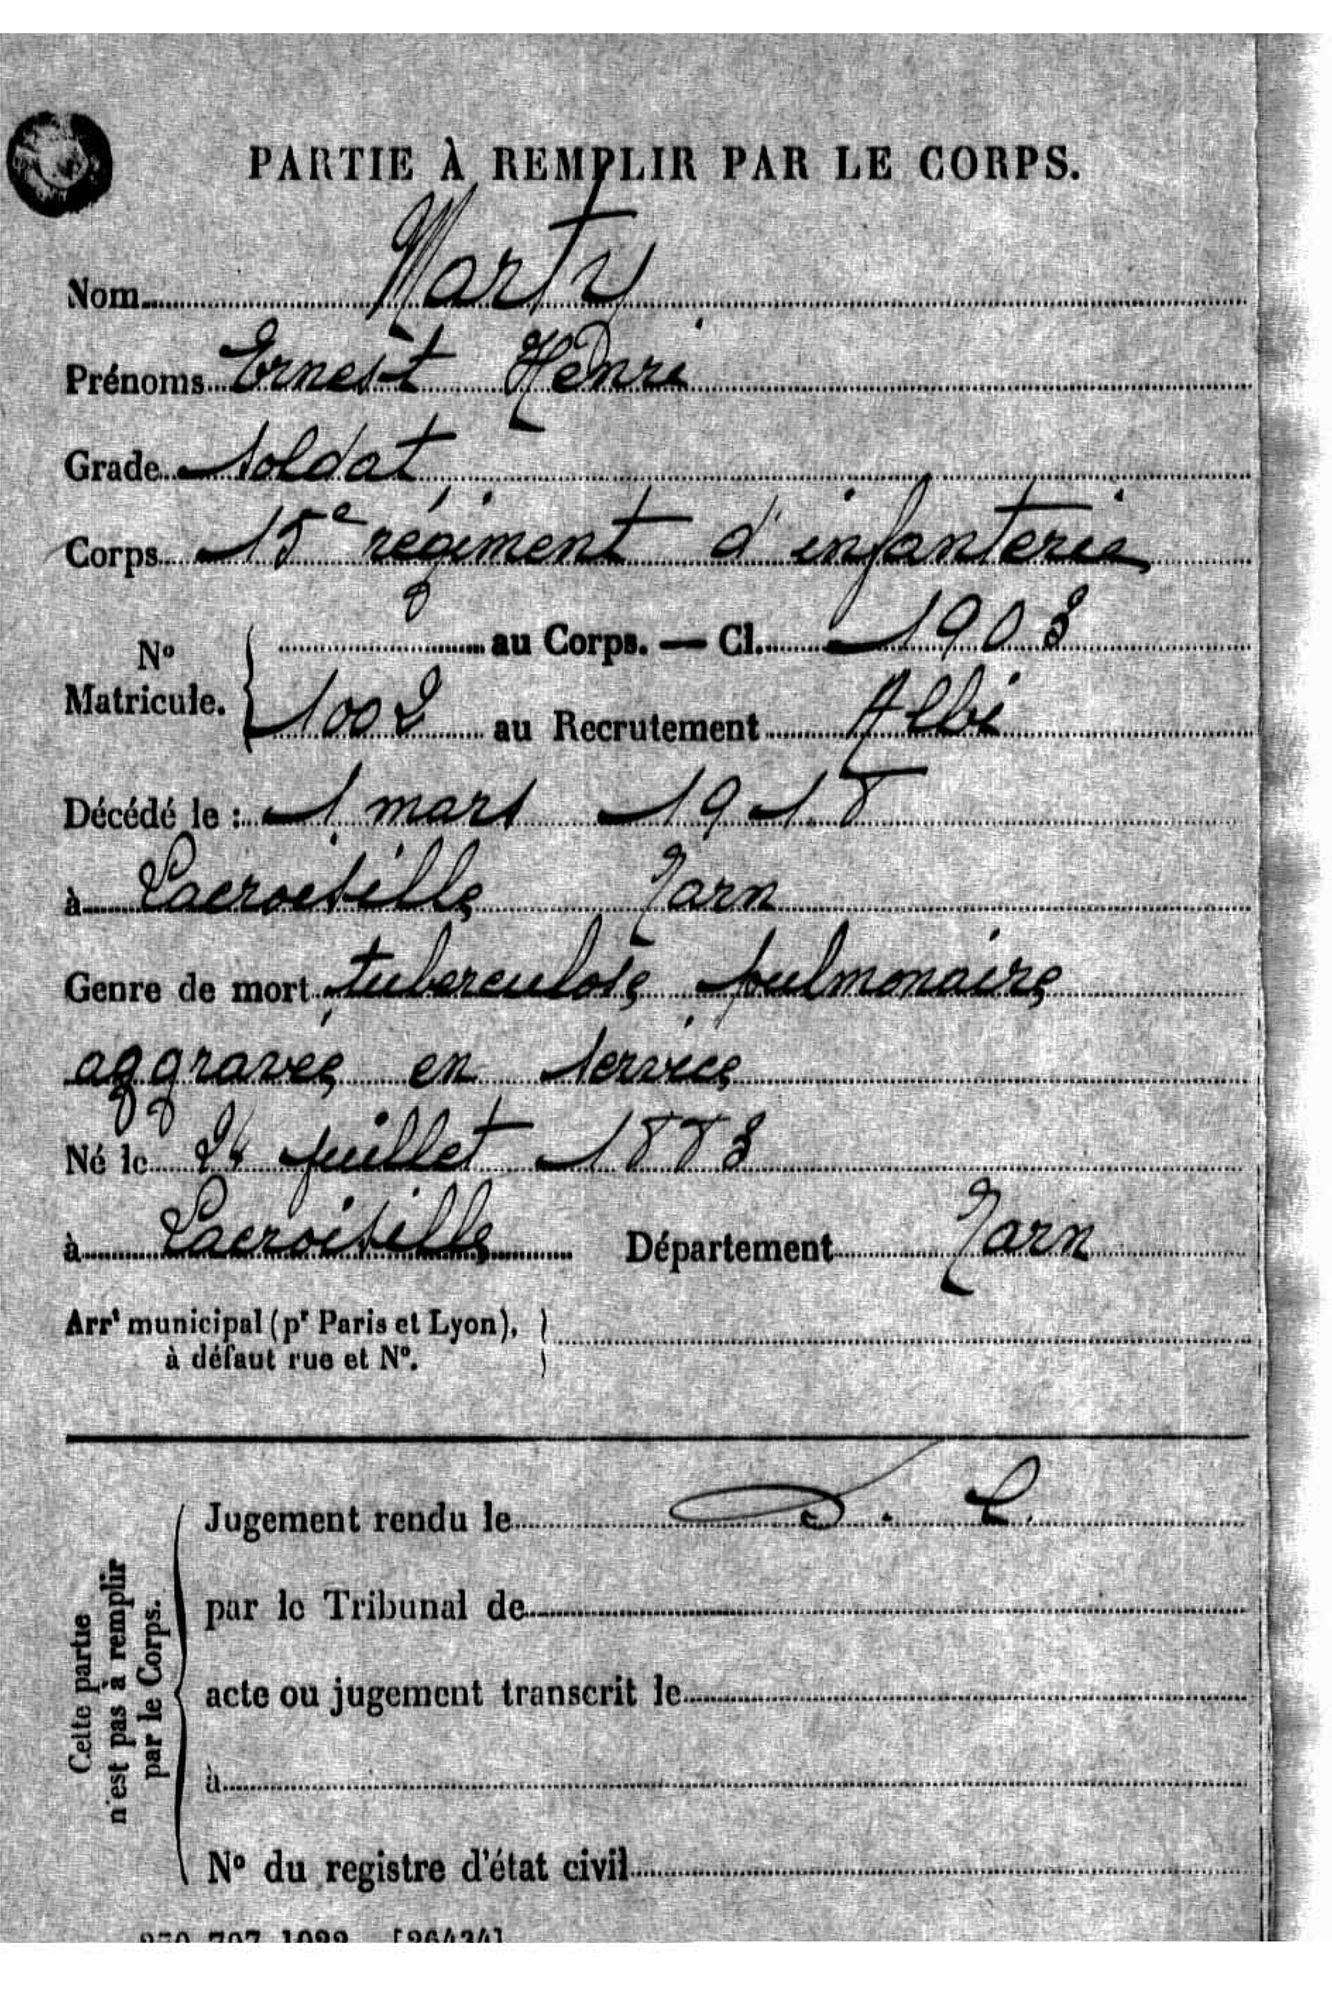 PARTIE À REMPLIR PAR LE CORPS.
Nom Marty
Prénoms Ernest Henri
Grade soldat
Corps 15e régiment d'infanterie
No Matricule. { au Corps. — Cl. 1903
1002 au Recrutement Albi
Décédé le : 1 mars 1918
à Lacroisille Tarn
Genre de mort tuberculose pulmonaire
aggravée en service
Né le 24 juillet 1883
à Lacroisille Département Tarn
Arrt municipal (pr Paris et Lyon), }
à défaut rue et No.
Cette partie n'est pas à remplir par le Corps.
Jugement rendu le
par le Tribunal de
acte ou jugement transcrit le
à
No du registre d'état civil
[26434]